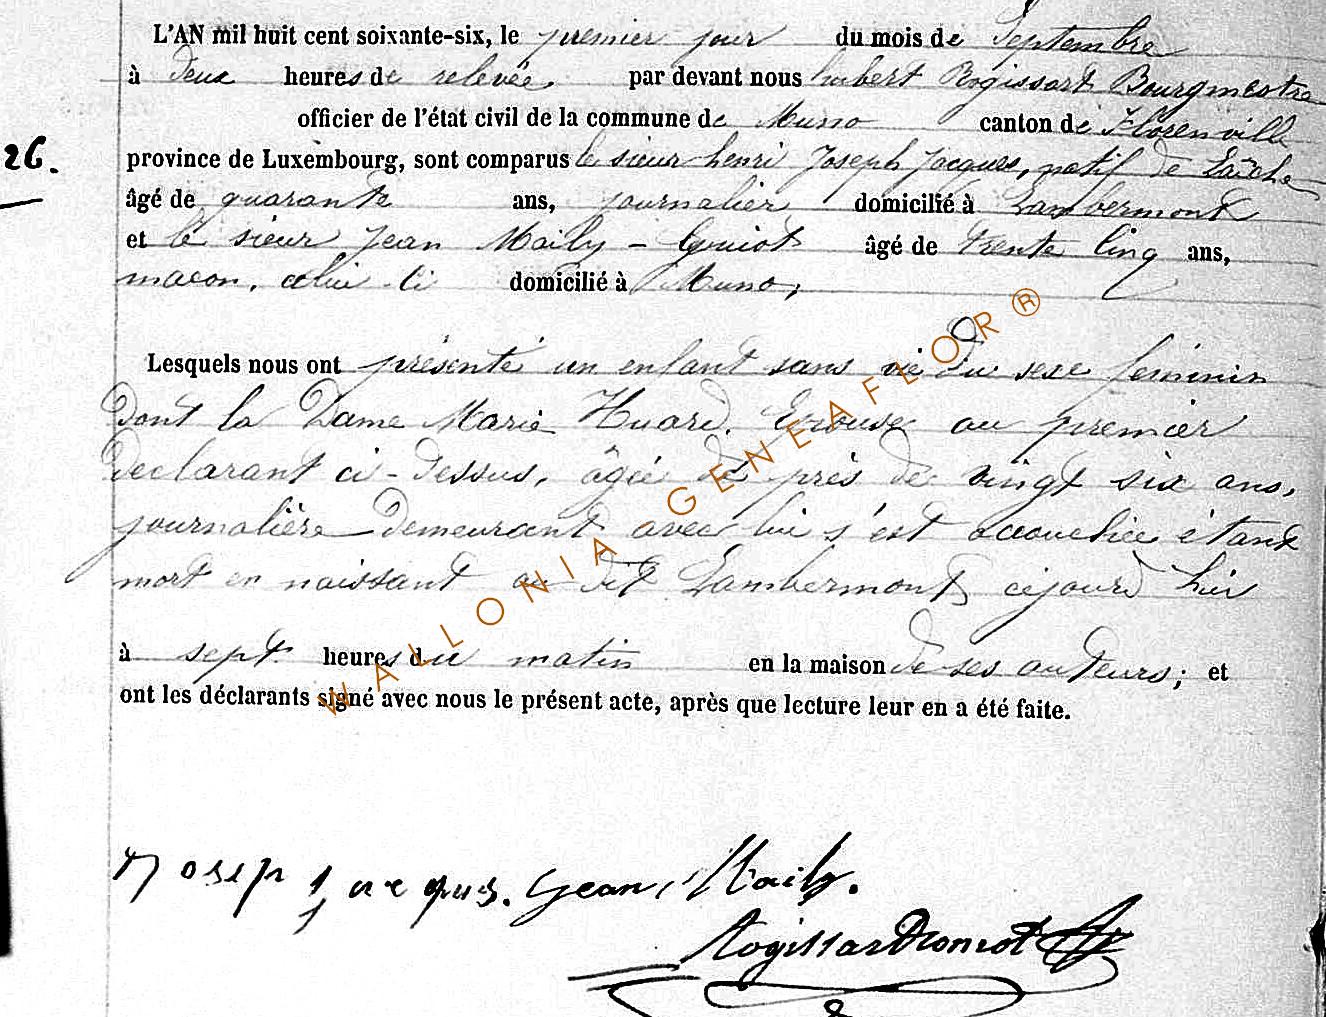 L'AN mil huit cent soixante-six, le premier jour du mois de Septembre
à deux heures de relevée, par devant nous hubert Rogissart Bourgmestre
officier de l'état civil de la commune de Muno canton de Florenville
26. province de Luxembourg, sont comparus le sieur henri Joseph Jacques, natif de Laiche
âgé de quarante ans, journalier, domicilié à Lambermont
et le sieur Jean Maily - Guiot âgé de trente cinq ans,
macon, celui-ci domicilié à Muno,
Lesquels nous ont présenté un enfant sans vie du sexe feminin
dont la Dame Marie Huard, Epouse au premier
declarant ci-dessus, âgée de près de vingt six ans,
journalière demeurant avec lui s'est accouchée étant
mort en naissant au dit Lambermont cejourd'hui
à sept heures du matin en la maison de ses auteurs; et
ont les déclarants signé avec nous le présent acte, après que lecture leur en a été faite.
WALLONIA GENEAFLOR ®
Josep Jacques. Jean Maily.
Rogissart